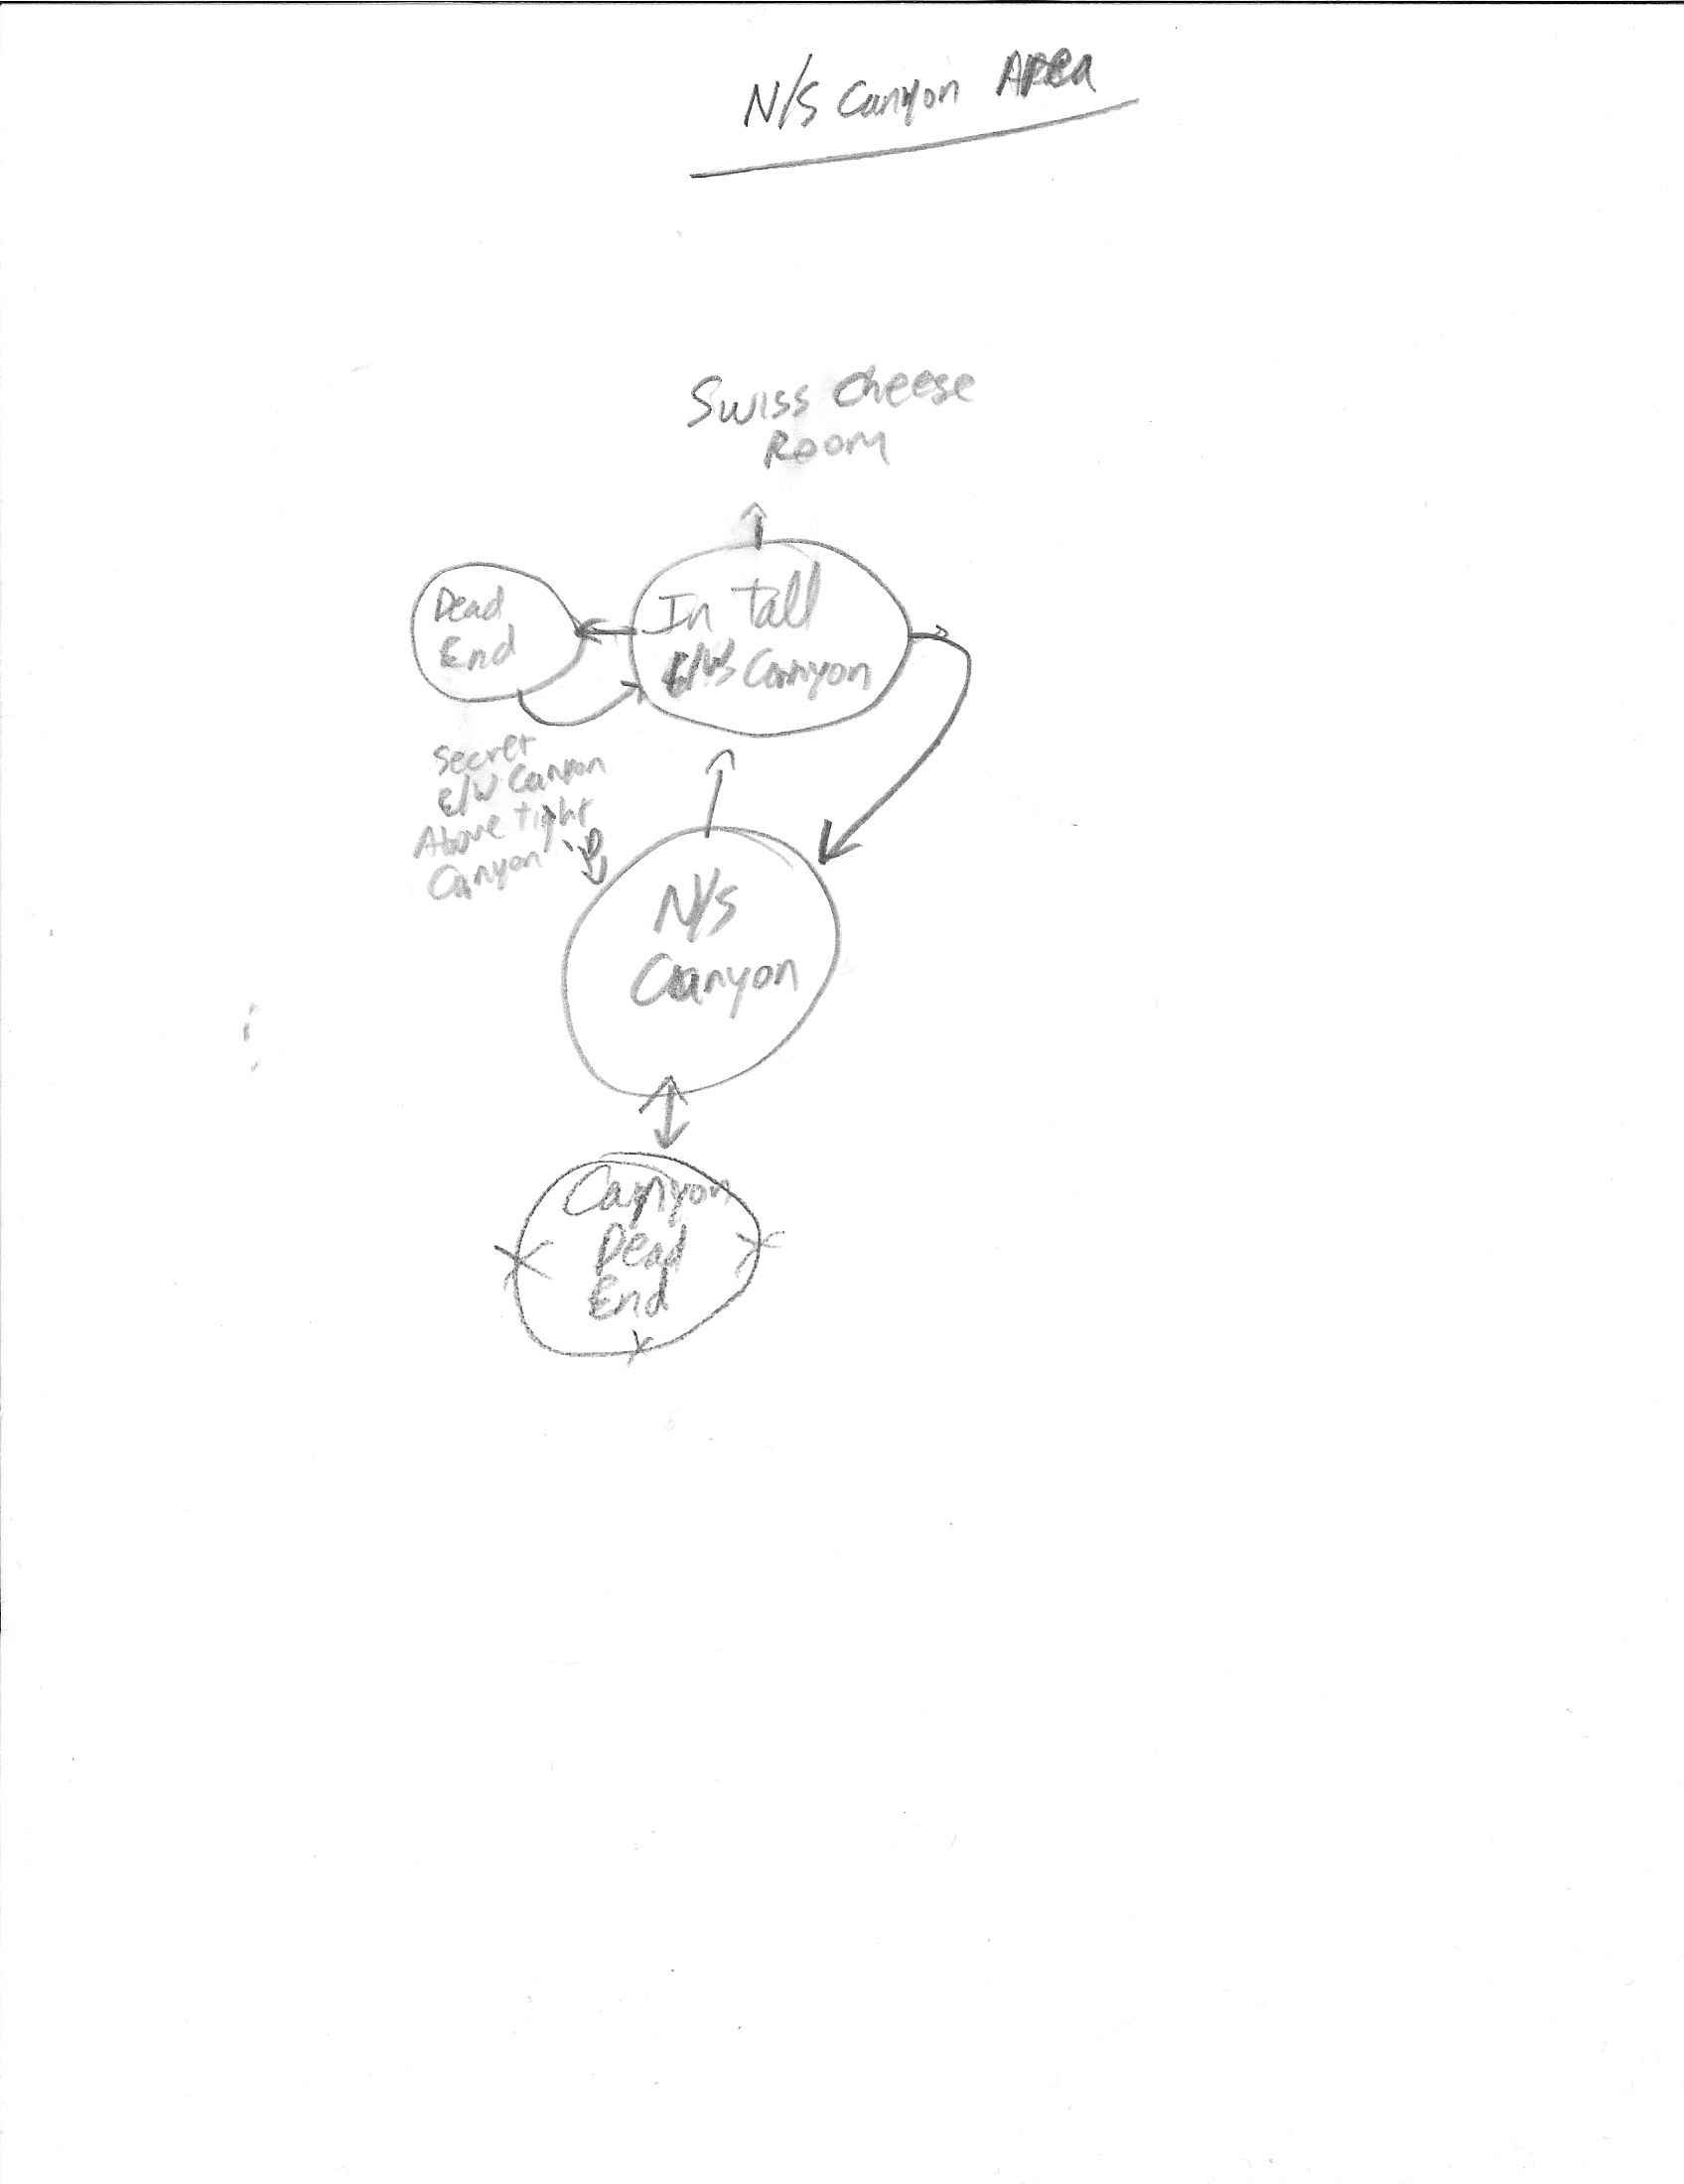 N/S Canyon Area
Swiss Cheese
Room
Dead
End
In tall
E/W Canyon
Secret
E/W Canyon
Above tight
Canyon
D
N/S
Canyon
Canyon
Dead
End